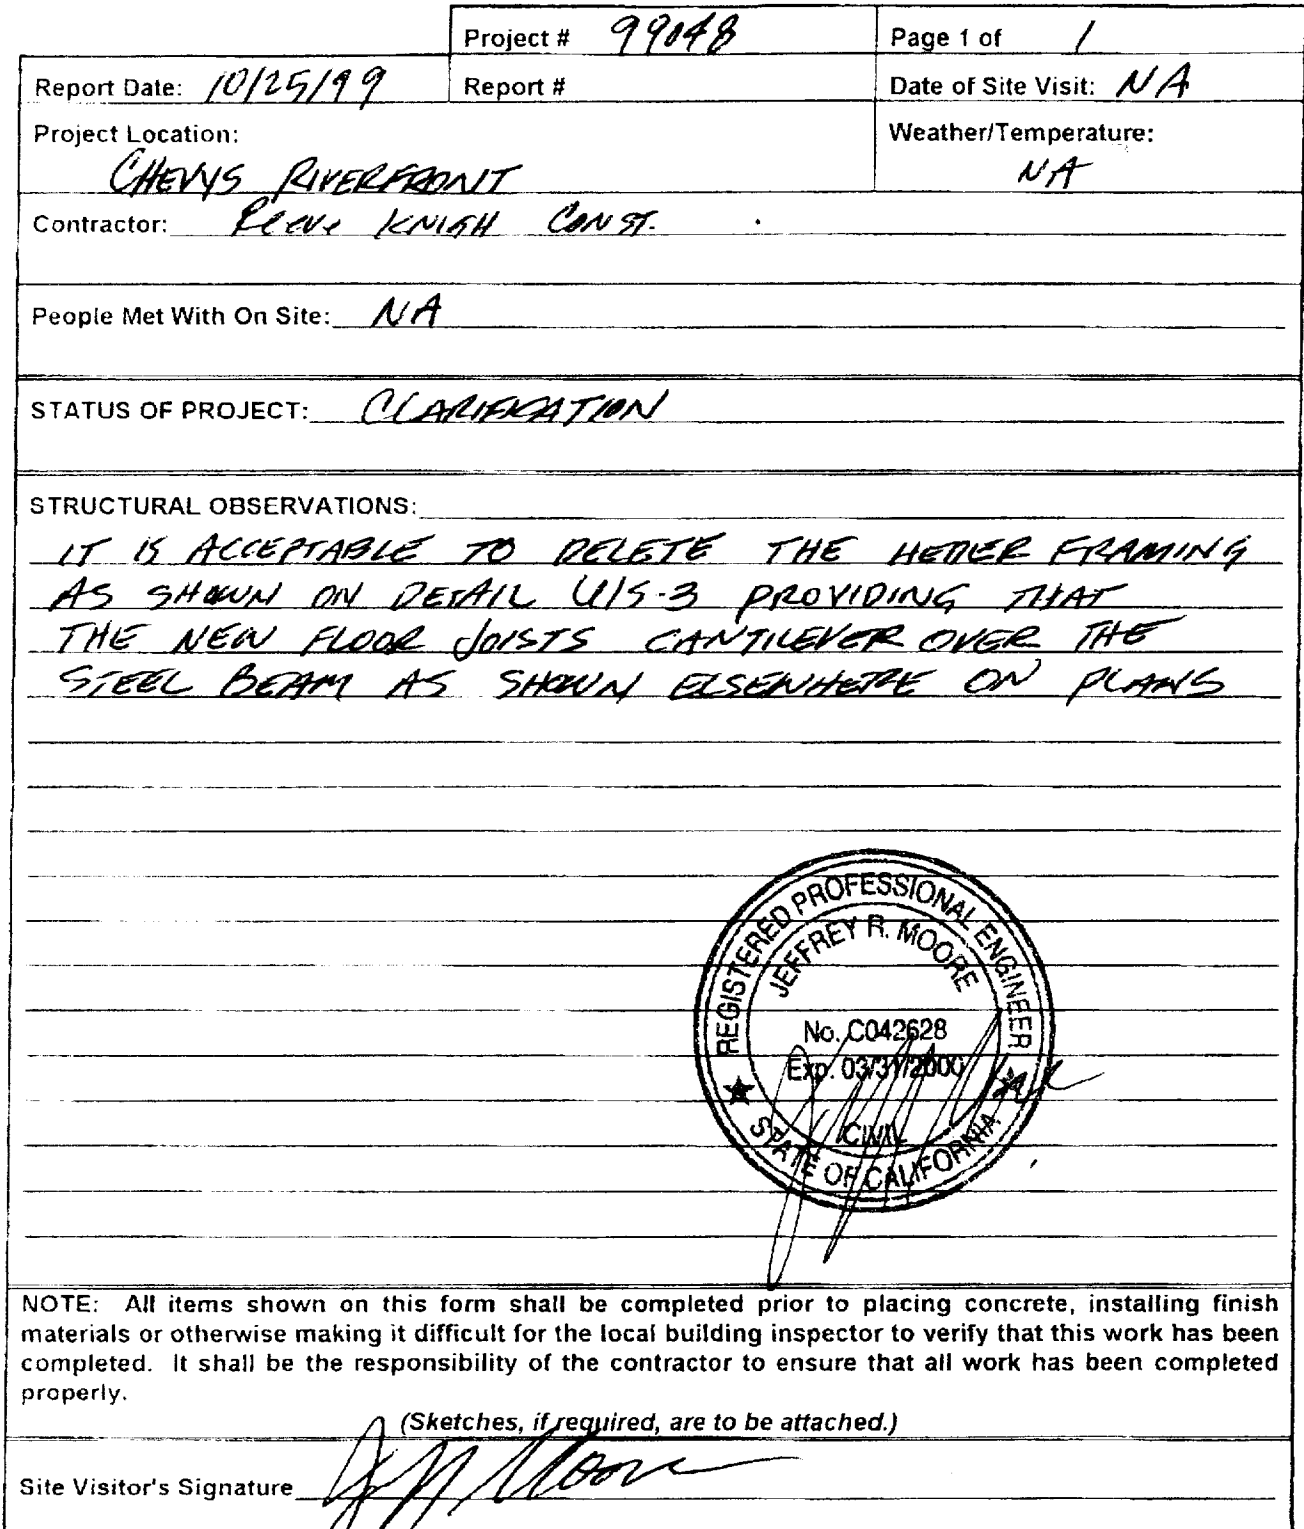 Project # 99048
Page 1 of 1
Report Date: 10/25/99
Report #
Date of Site Visit: NA
Project Location:
CHEVYS RIVERFRONT
Weather/Temperature:
NA
Contractor: Reeve KNIGH CONST.
People Met With On Site: NA
STATUS OF PROJECT: CLARIFICATION
STRUCTURAL OBSERVATIONS:
IT IS ACCEPTABLE TO DELETE THE HEDER FRAMING
AS SHOWN ON DETAIL U/S-3 PROVIDING THAT
THE NEW FLOOR JOISTS CANTILEVER OVER THE
STEEL BEAM AS SHOWN ELSEWHERE ON PLANS
REGISTERED PROFESSIONAL ENGINEER
JEFFREY R. MOORE
No. C042628
Exp. 03/31/2000
CIVIL
STATE OF CALIFORNIA
NOTE: All items shown on this form shall be completed prior to placing concrete, installing finish
materials or otherwise making it difficult for the local building inspector to verify that this work has been
completed. It shall be the responsibility of the contractor to ensure that all work has been completed
properly.
(Sketches, if required, are to be attached.)
Site Visitor's Signature Jeff Moore